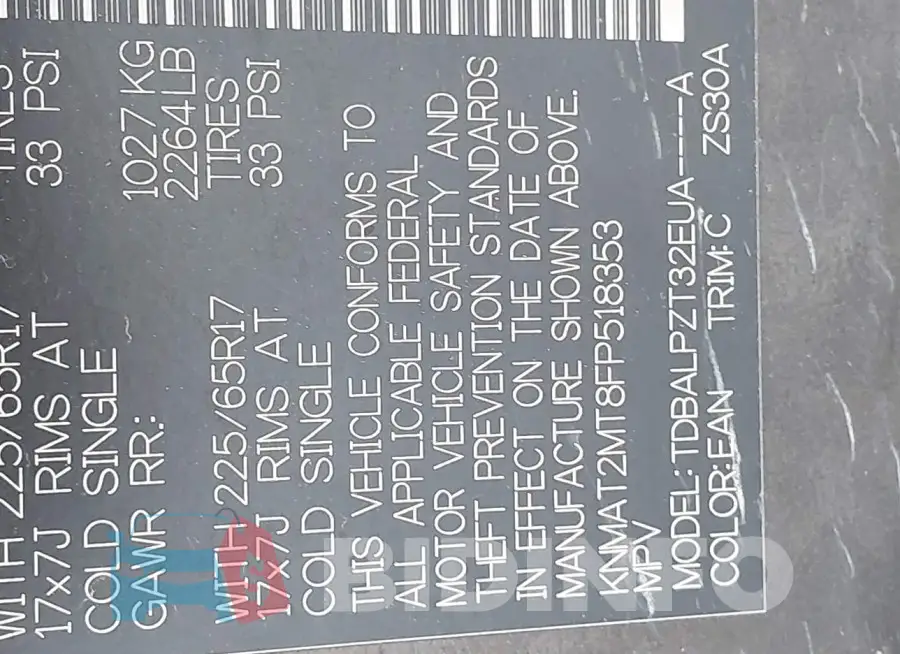 TIRES
WITH 225/65R17
17x7J RIMS AT 33 PSI
COLD SINGLE
GAWR RR: 1027 KG
2264LB
WITH 225/65R17 TIRES
17x7J RIMS AT 33 PSI
COLD SINGLE
THIS VEHICLE CONFORMS TO
ALL APPLICABLE FEDERAL
MOTOR VEHICLE SAFETY AND
THEFT PREVENTION STANDARDS
IN EFFECT ON THE DATE OF
MANUFACTURE SHOWN ABOVE.
KNMAT2MT8FP518353
MPV
MODEL:TDBALPZT32EUA-----A
COLOR:EAN TRIM:C ZS30A
BIDINFO